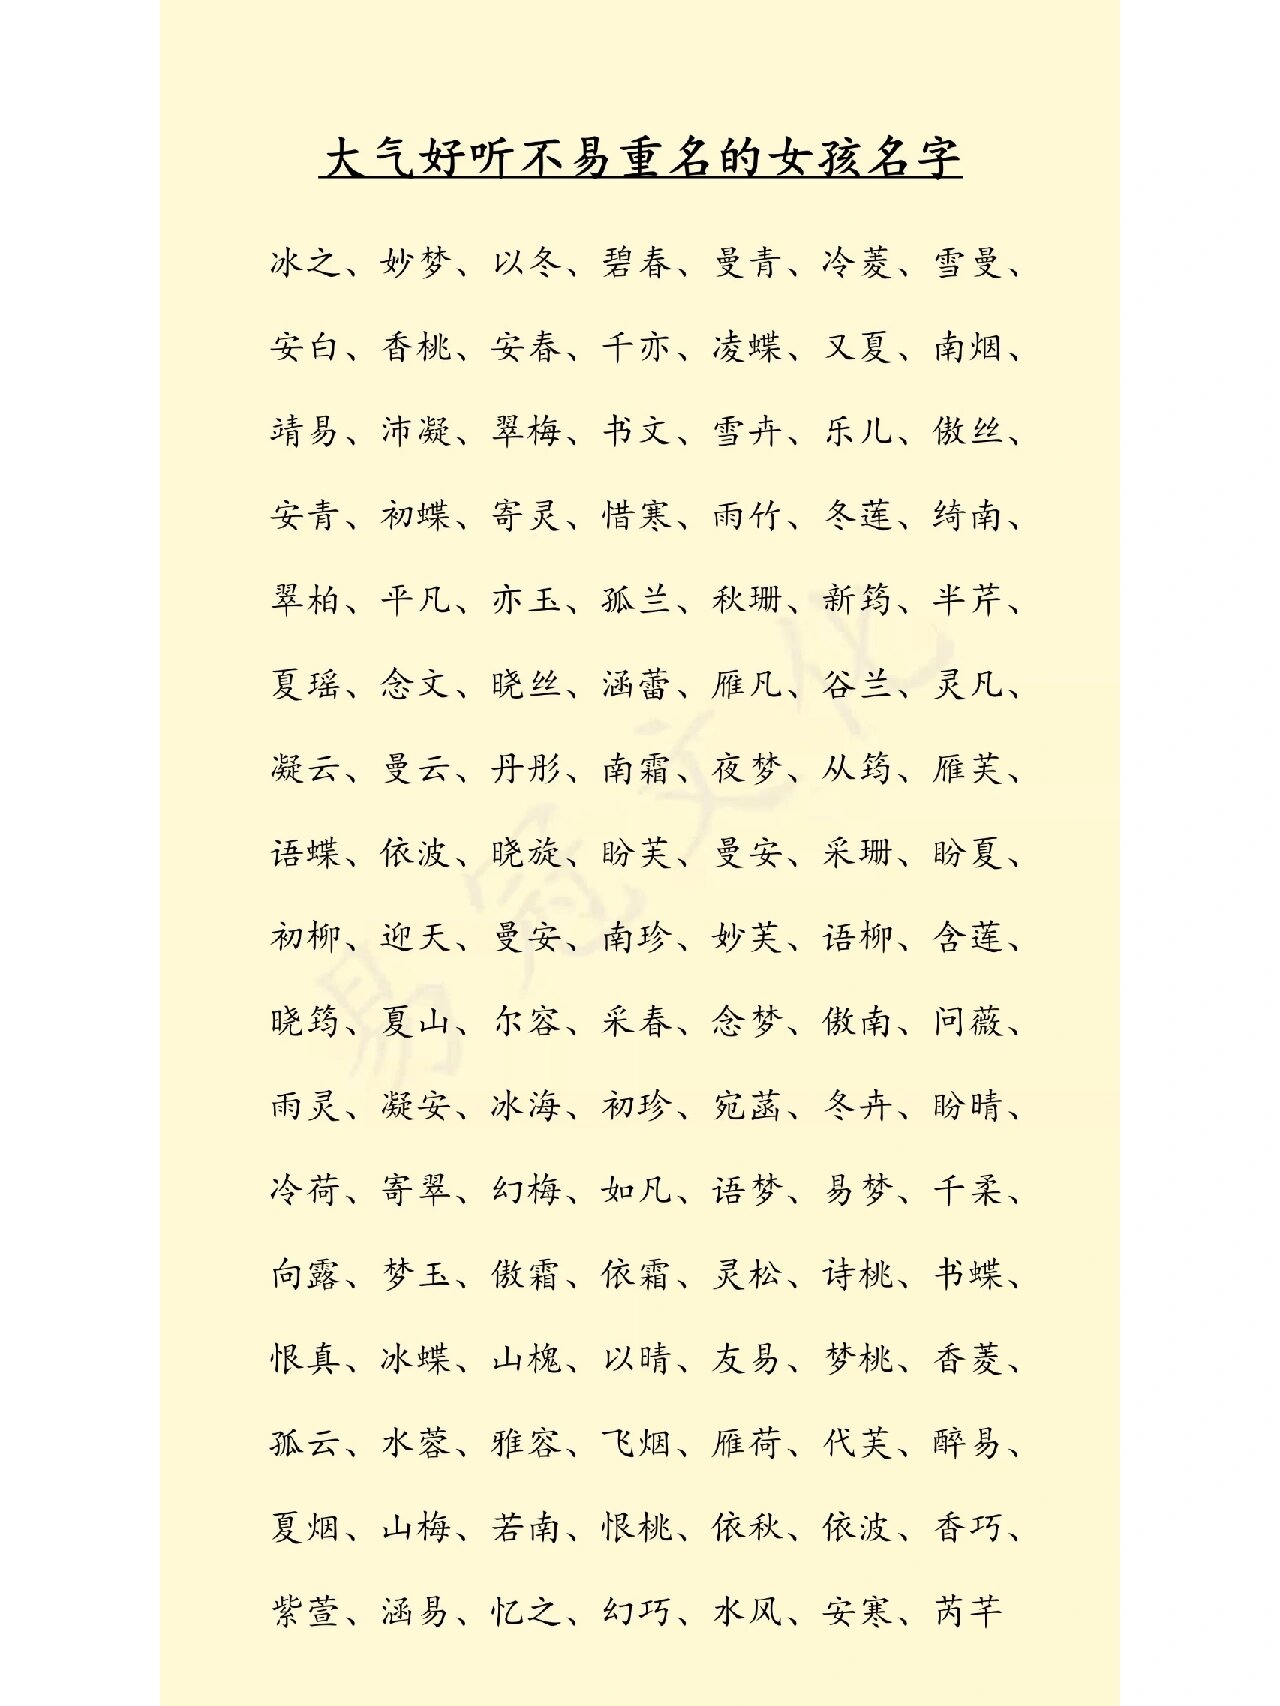 大气好听不易重名的女孩名字
冰之、妙梦、以冬、碧春、曼青、冷菱、雪曼、
安白、香桃、安春、千亦、凌蝶、又夏、南烟、
靖易、沛凝、翠梅、书文、雪卉、乐儿、傲丝、
安青、初蝶、寄灵、惜寒、雨竹、冬莲、绮南、
翠柏、平凡、亦玉、孤兰、秋珊、新筠、半芹、
夏瑶、念文、晓丝、涵蕾、雁凡、谷兰、灵凡、
凝云、曼云、丹彤、南霜、夜梦、从筠、雁芙、
语蝶、依波、晓旋、盼芙、曼安、采珊、盼夏、
初柳、迎天、曼安、南珍、妙芙、语柳、含莲、
晓筠、夏山、尔容、采春、念梦、傲南、问薇、
雨灵、凝安、冰海、初珍、宛菡、冬卉、盼晴、
冷荷、寄翠、幻梅、如凡、语梦、易梦、千柔、
向露、梦玉、傲霜、依霜、灵松、诗桃、书蝶、
恨真、冰蝶、山槐、以晴、友易、梦桃、香菱、
孤云、水蓉、雅容、飞烟、雁荷、代芙、醉易、
夏烟、山梅、若南、恨桃、依秋、依波、香巧、
紫萱、涵易、忆之、幻巧、水风、安寒、芮芊
易冠文化